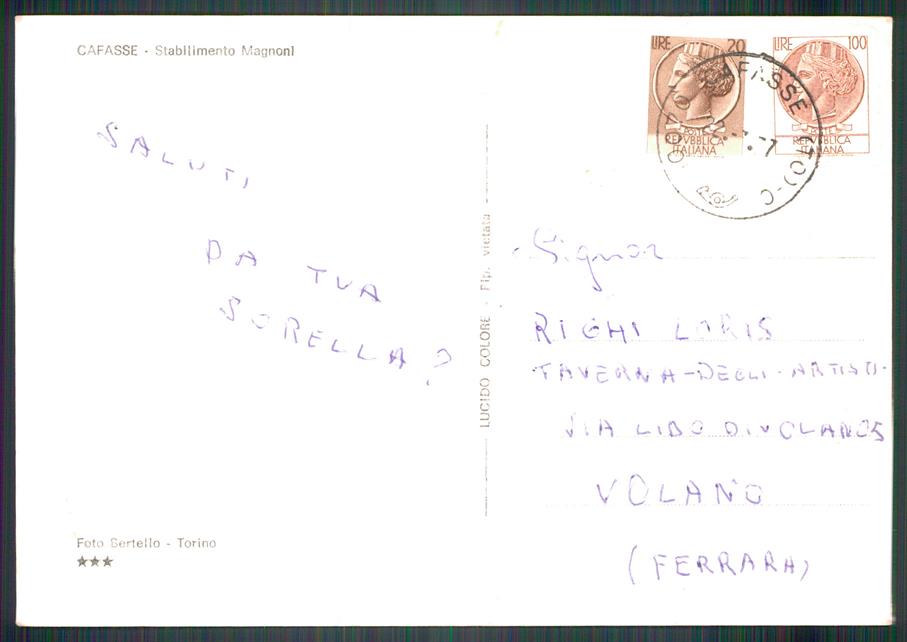 CAFASSE - Stabilimento Magnoni
SALUTI
DA TUA
SORELLA?
Foto Bertello - Torino
LUCIDO COLORE - Rip. vietata
LIRE 20
POSTE
REPVBBLICA
ITALIANA
LIRE 100
POSTE
REPVBBLICA
ITALIANA
CAFASSE (TO)-C
Signor
RIGHI LORIS
TAVERNA-DEGLI-ARTISTI-
VIA LIDO DI VOLANO
VOLANO
(FERRARA)